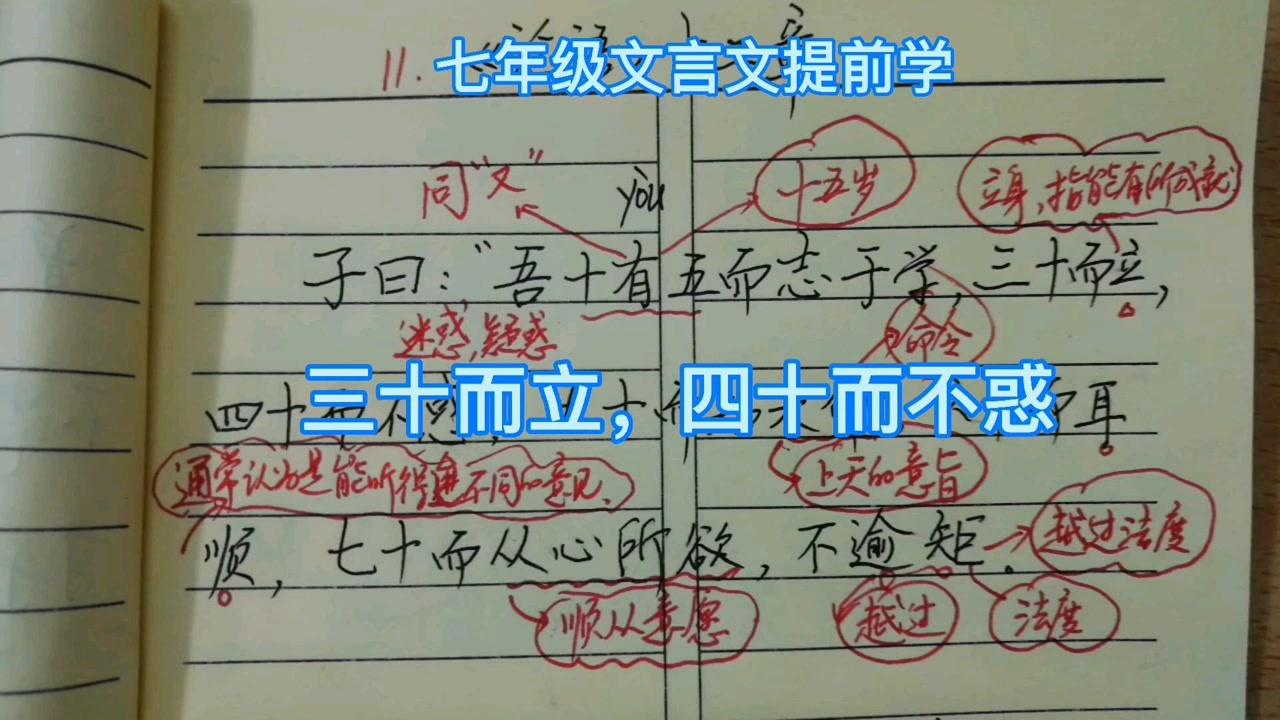 11.
七年级文言文提前学
同“文”
yòu
十五岁
立身，指能有所成就
子曰：“吾十有五而志于学，三十而立，
迷惑，疑惑
命令
三十而立，四十而不惑
四十而不惑，
耳
通常认为是能听得进不同的意见.
上天的意旨
顺，七十而从心所欲，不逾矩.
越过法度
顺从意愿
越过
法度